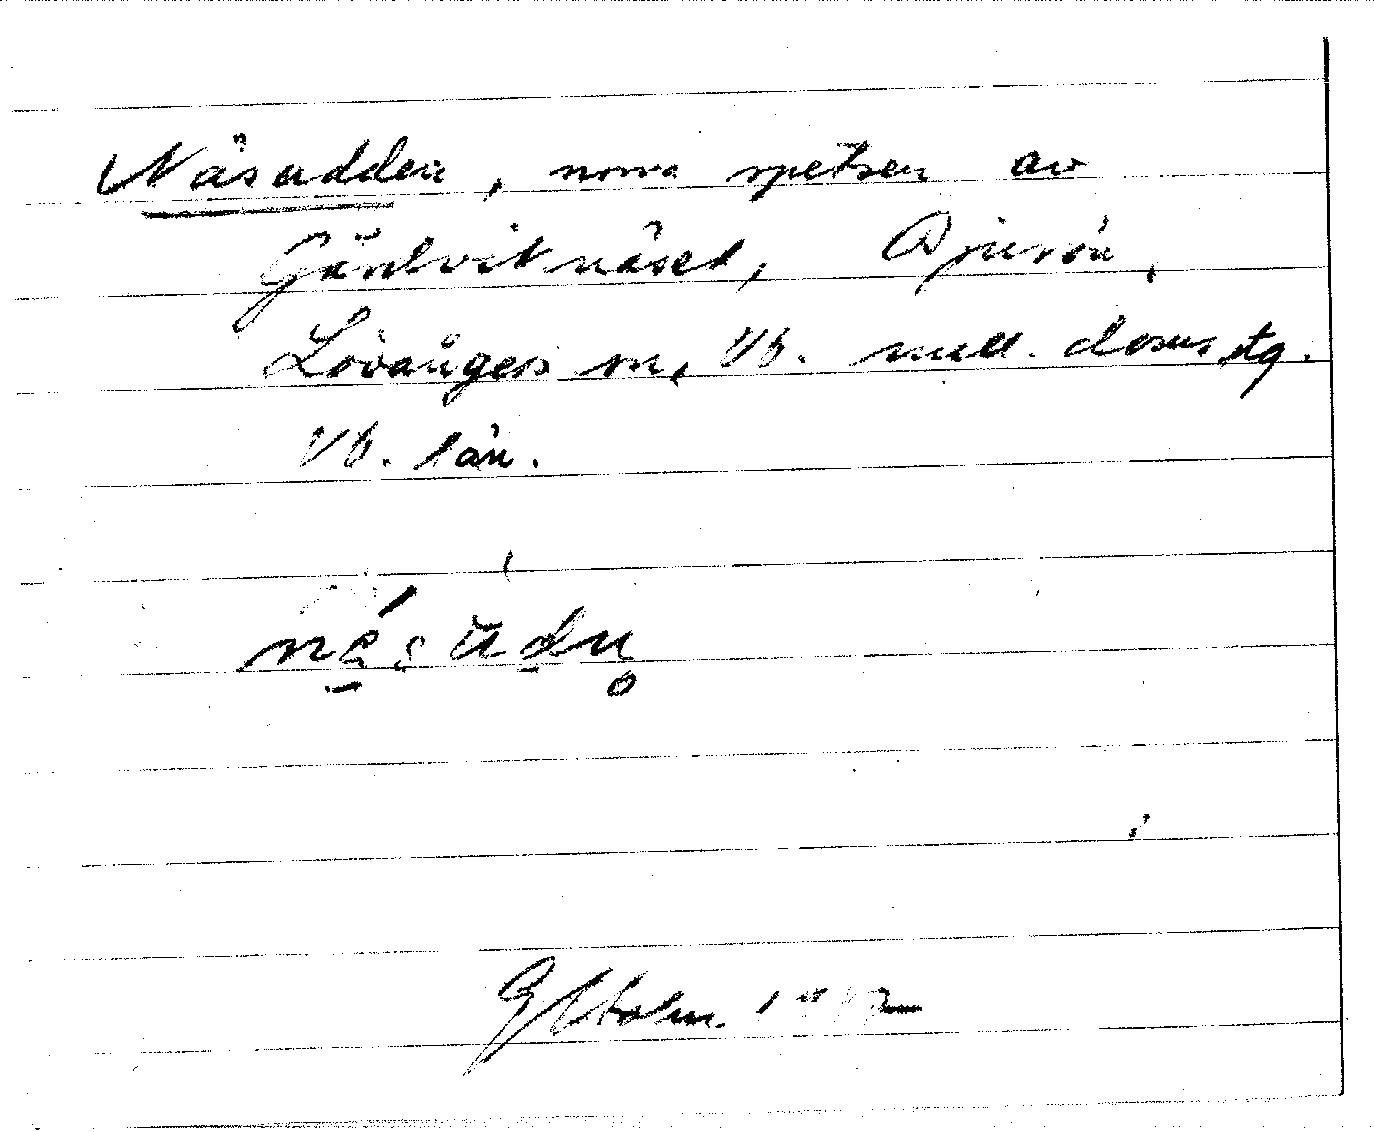 Näsudden, norra spetsen av
Gärdviknäset, Bjurön,
Lövångers sn, Vb. mell. doms. tg.
Vb. län.
G Holm. 19